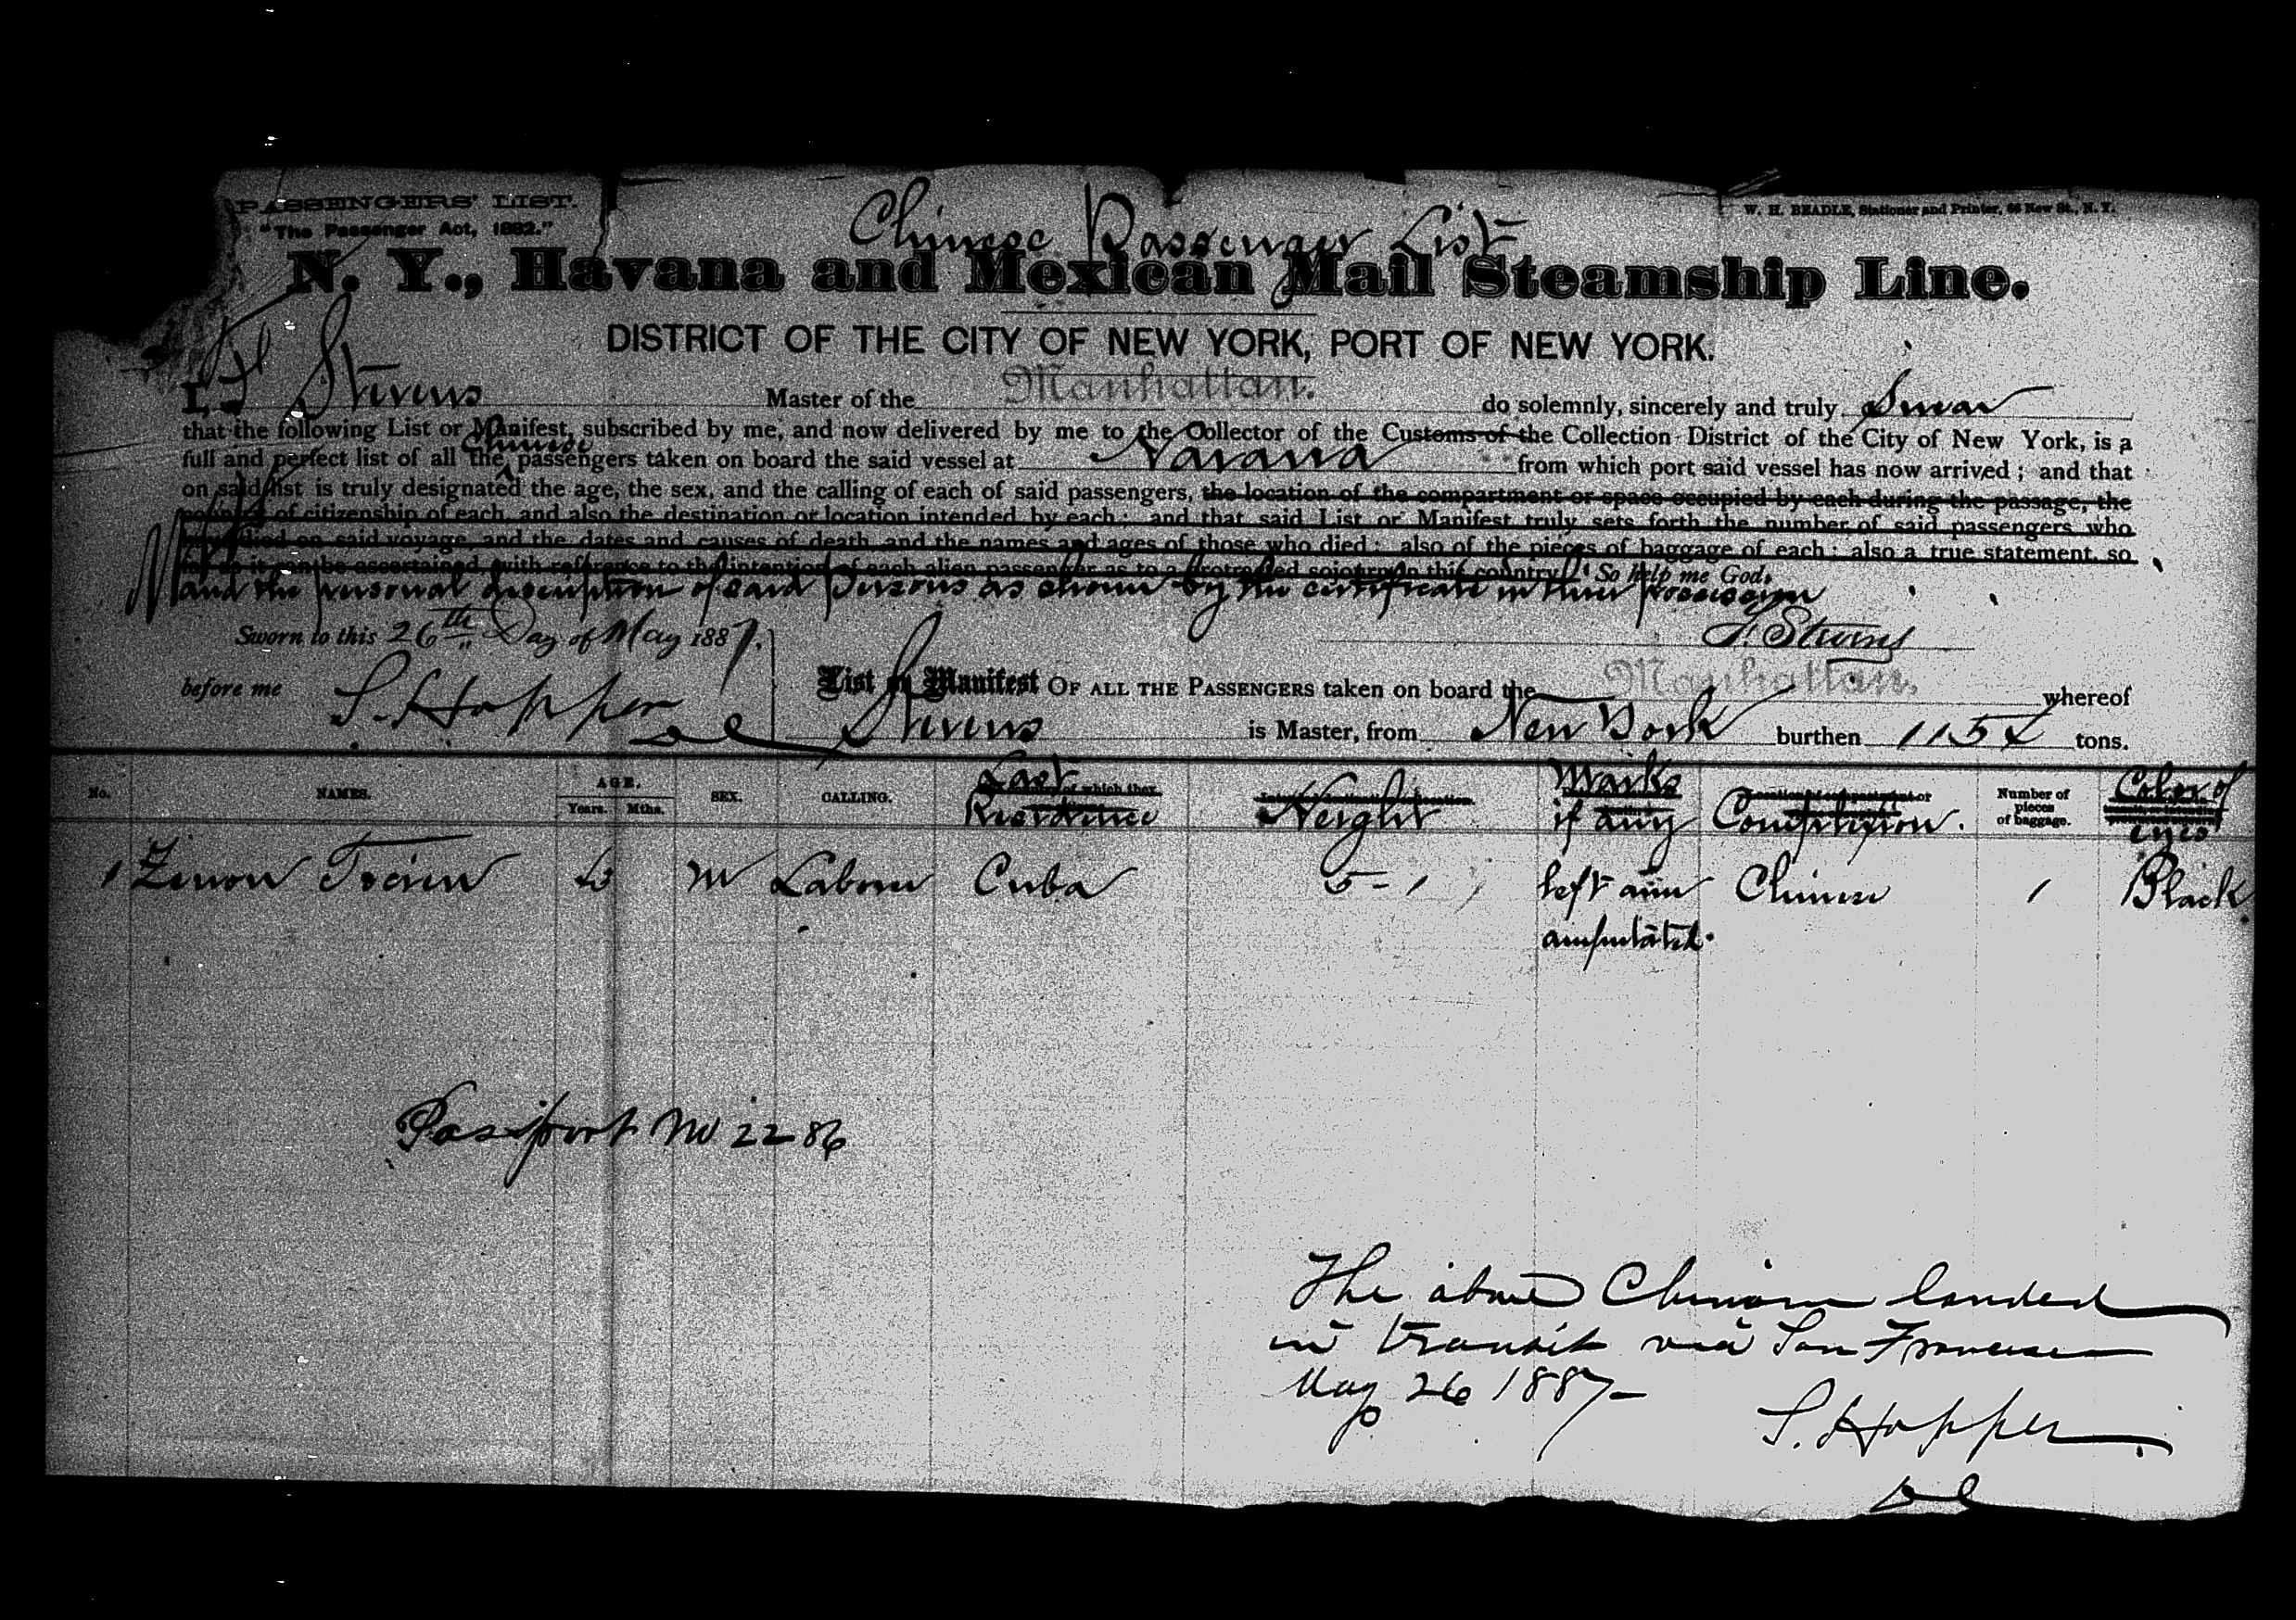 PASSENGERS' LIST.
"The Passenger Act, 1882."
W. H. BEADLE, Stationer and Printer, New St., N. Y.
Chinese Passenger List
N. Y., Havana and Mexican Mail Steamship Line.
DISTRICT OF THE CITY OF NEW YORK, PORT OF NEW YORK.
I, F Stevens Master of the Manhattan. do solemnly, sincerely and truly Swear
that the following List or Manifest, subscribed by me, and now delivered by me to the Collector of the Customs of the Collection District of the City of New York, is a
Chinese
full and perfect list of all the passengers taken on board the said vessel at Havana from which port said vessel has now arrived ; and that
on said list is truly designated the age, the sex, and the calling of each of said passengers, the location of the compartment or space occupied by each during the passage, the
of citizenship of each, and also the destination or location intended by each ; and that said List or Manifest truly sets forth the number of said passengers who
died on said voyage, and the dates and causes of death, and the names and ages of those who died ; also of the pieces of baggage of each ; also a true statement, so
be ascertained with reference to the intention of each alien passenger as to a protracted sojourn in this country. So help me God.
and the personal description of said persons as shown by the certificate in their possession
Sworn to this 26th Day of May 1887. F. Stevens
before me S. Hopper List or Manifest OF ALL THE PASSENGERS taken on board the Manhattan. whereof
Stevens is Master, from New York burthen tons.
No. NAMES. AGE. Years. Mths. SEX. CALLING. Last Residence Height Marks if any Complexion. Number of pieces of baggage. Color of eyes
1 M Labour Cuba 5-1 left arm Chinese 1 Black
amputated.
Passport No 2286
The above Chinam landed
in transit via San Francisco
May 26 1887-
S. Hopper